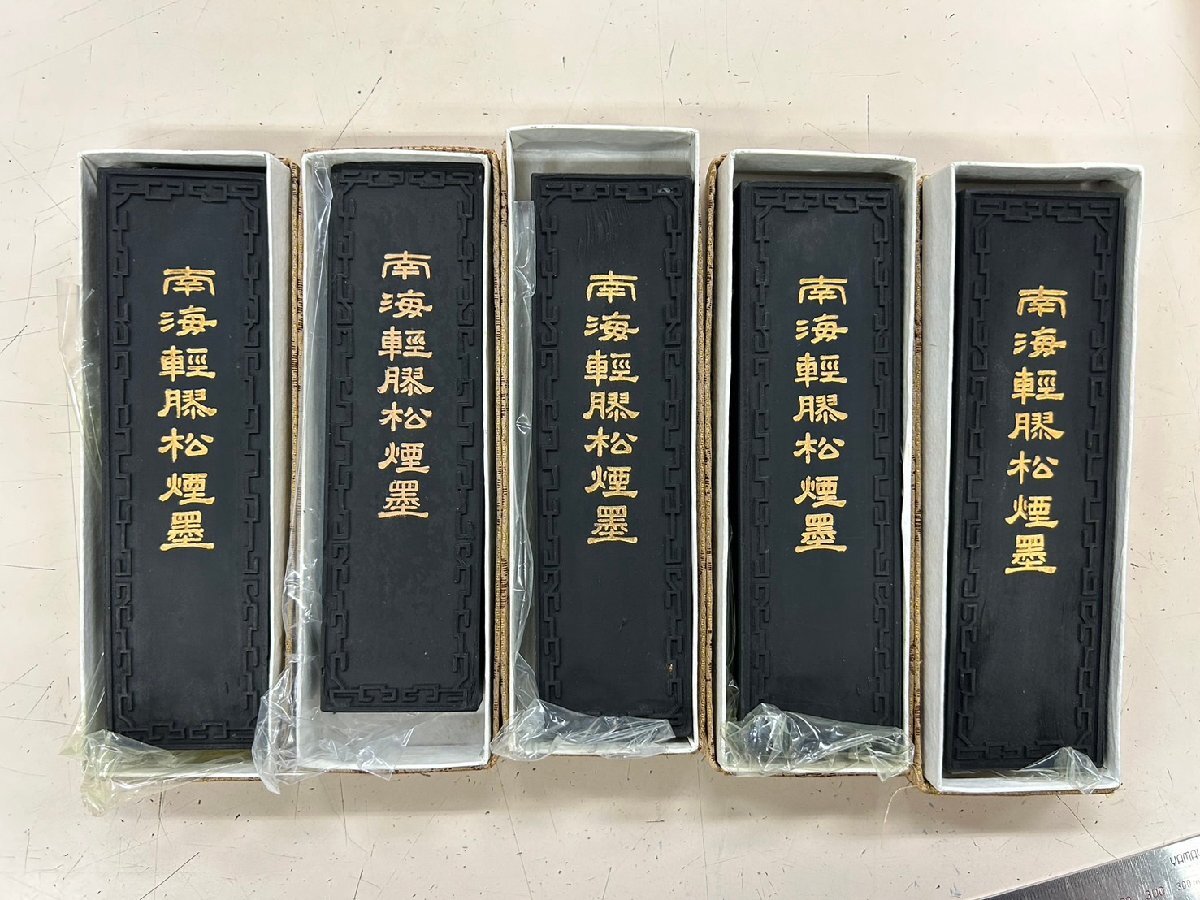 南海輕膠松煙墨
南海輕膠松煙墨
南海輕膠松煙墨
南海輕膠松煙墨
南海輕膠松煙墨
300